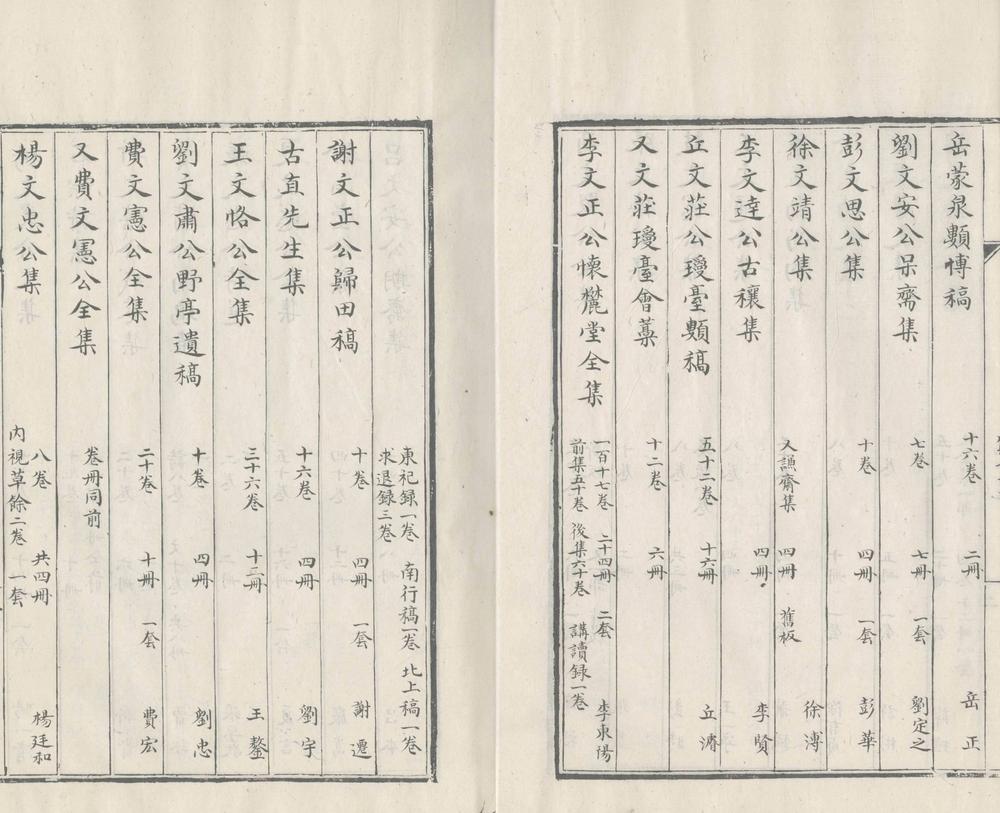 岳蒙泉類博稿 十六卷 二冊 岳正
劉文安公呆齋集 七卷 七冊 一套 劉定之
彭文思公集 十卷 四冊 一套 彭華
徐文靖公集 又謙齋集 四冊 舊板 徐溥
李文達公古穰集 四冊 李賢
丘文莊公瓊臺類稿 五十二卷 十六冊 丘濬
又文莊瓊臺會藁 十二卷 六冊
李文正公懷麓堂全集 一百十七卷 二十四冊 二套 李東陽
前集五十卷 後集六十卷 講讀録一卷
東祀録一卷 南行稿一卷 北上稿一卷
求退録三卷
謝文正公歸田稿 十卷 四冊 一套 謝遷
古直先生集 十六卷 四冊 劉宇
王文恪公全集 三十六卷 十二冊 王鏊
劉文肅公野亭遺稿 十卷 四冊 劉忠
費文憲公全集 二十卷 十冊 一套 費宏
又費文憲公全集 卷冊同前
楊文忠公集 八卷 共四冊 楊廷和
內視草餘二卷 一套